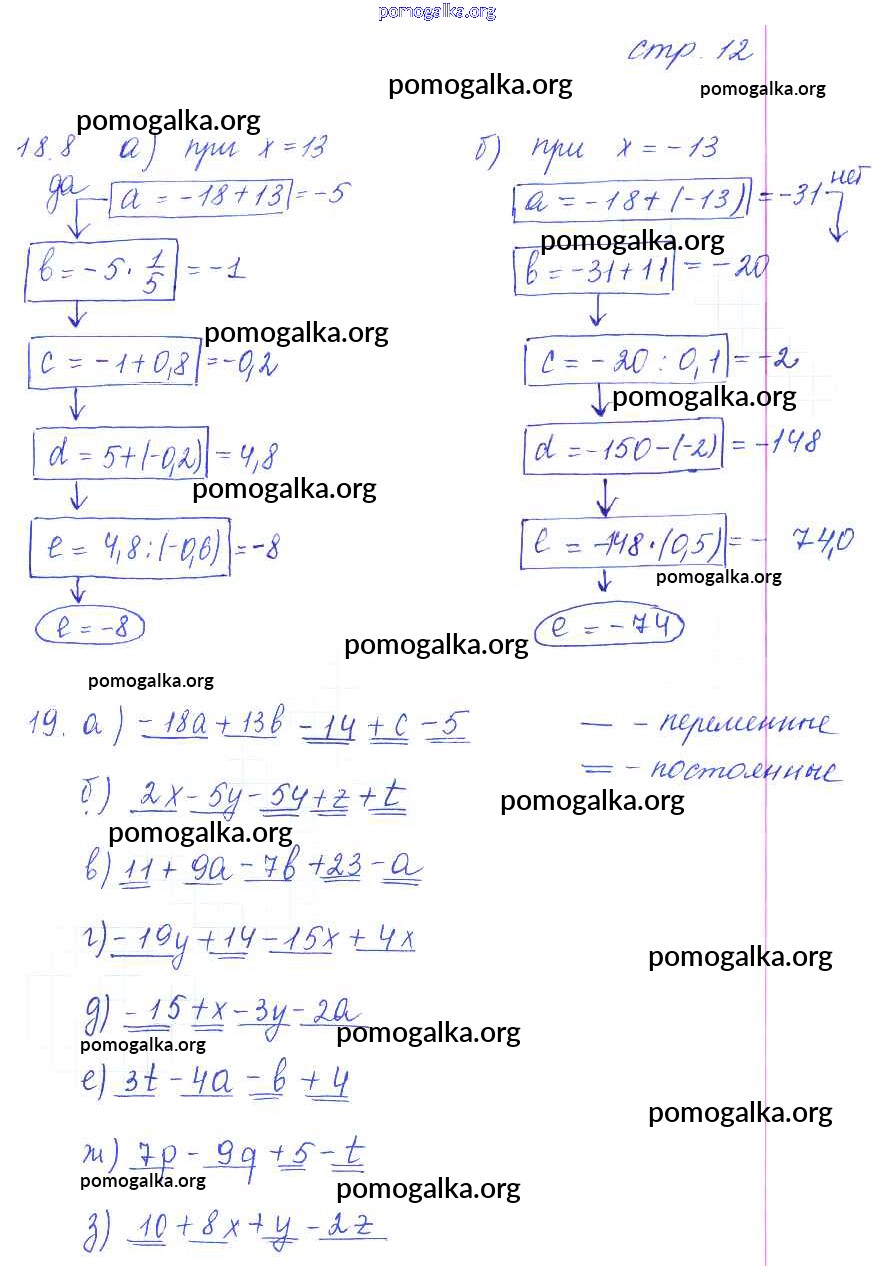 pomogalka.org
стр. 12
pomogalka.org
pomogalka.org
pomogalka.org
18.8 а) при x = 13
да a = -18+13 = -5
b = -5 · 1/5 = -1
pomogalka.org
c = -1+0,8 = -0,2
d = 5+(-0,2) = 4,8
pomogalka.org
e = 4,8:(-0,6) = -8
e = -8
б) при x = -13
a = -18+(-13) = -31 нет
pomogalka.org
b = -31+11 = -20
c = -20 : 0,1 = -2
pomogalka.org
d = -150-(-2) = -148
e = -148·(0,5) = - 74,0
pomogalka.org
e = -74
pomogalka.org
pomogalka.org
19. а) -18a + 13b - 14 + c - 5
— - переменные
= - постоянные
б) 2x - 5y - 5y + z + t
pomogalka.org
pomogalka.org
в) 11 + 9a - 7b + 23 - a
г) -19y + 14 - 15x + 4x
pomogalka.org
д) -15 + x - 3y - 2a
pomogalka.org
pomogalka.org
е) 3t - 4a - b + 4
pomogalka.org
ж) 7p - 9q + 5 - t
pomogalka.org
pomogalka.org
з) 10 + 8x + y - 2z